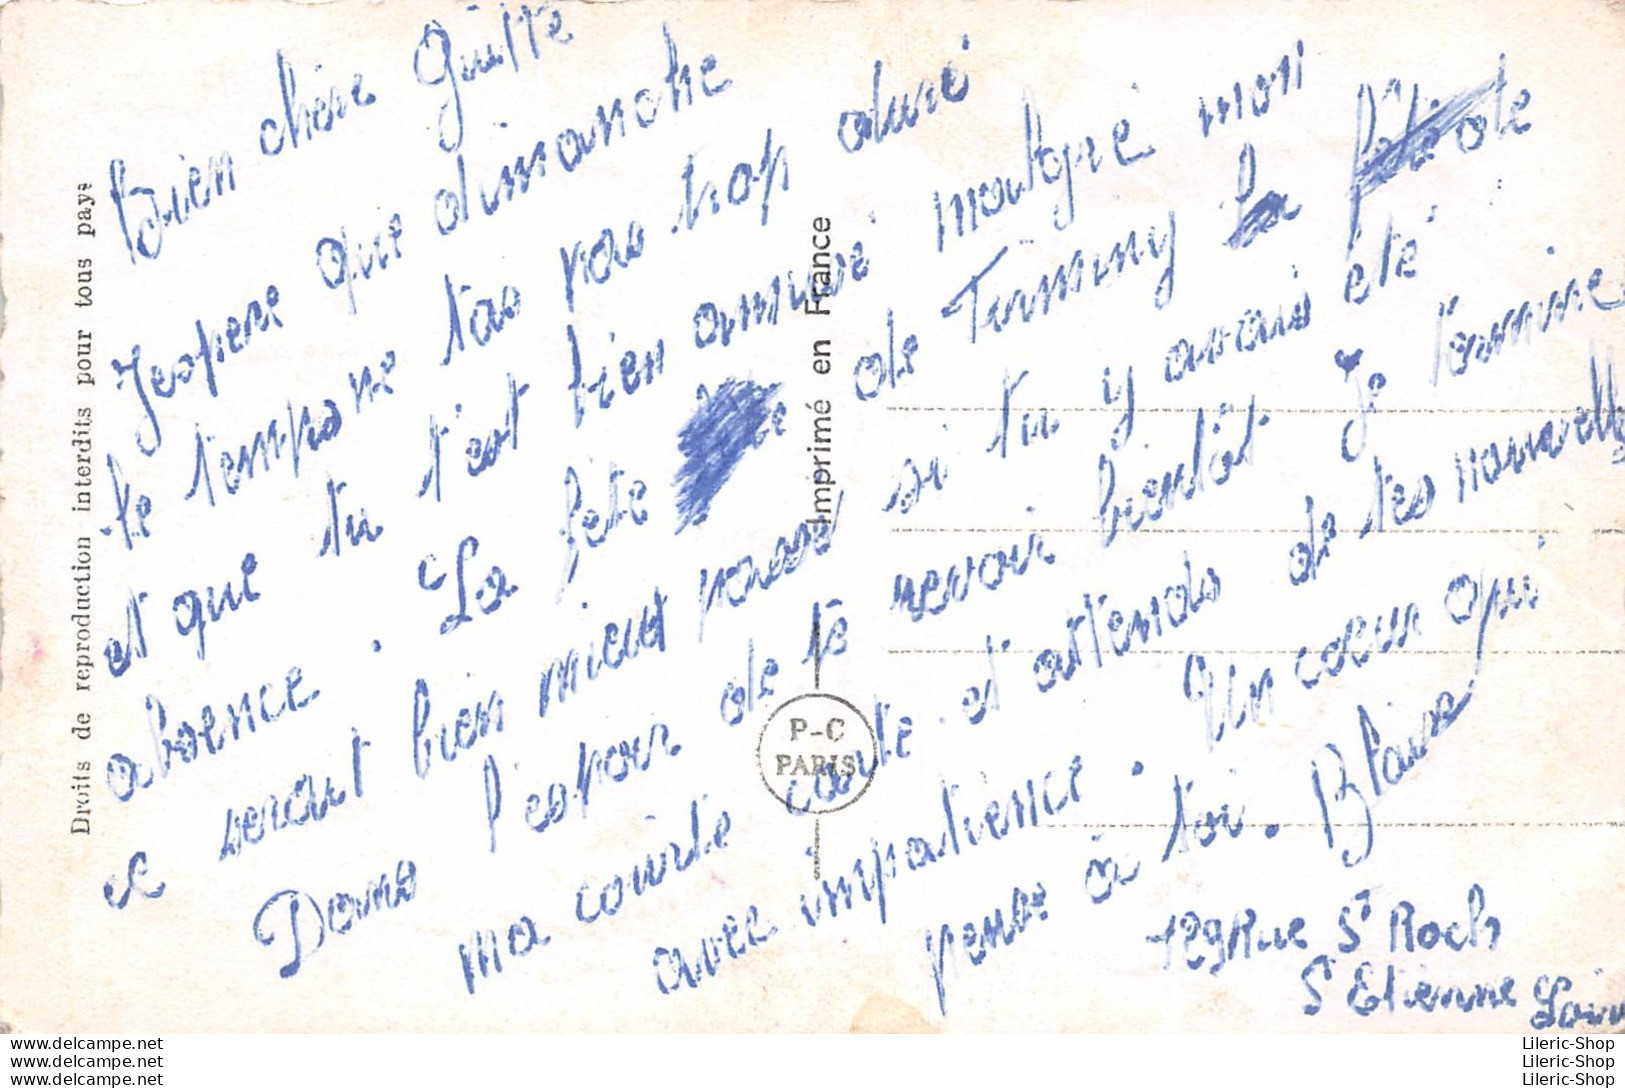 Bien chère Guitte
Jespere que dimanche
le tempane tas pas trop duré
et que tu t'est bien amusé malgré mon
absence. La fete de Tanniny
ce serait bien mieux passé si tu y avais été
Dans l'espoir de te revoir bientôt Je termine
ma courte carte et attends de tes nouvelle
avec impatience. Un coeur qui
pense à toi. Blaise
129 Rue St Roch
St Etienne Loire
Droits de reproduction interdits pour tous pays
Imprimé en France
P-C
PARIS
Lileric-Shop
Lileric-Shop
Lileric-Shop
Lileric-Shop
Lileric-Shop
Lileric-Shop